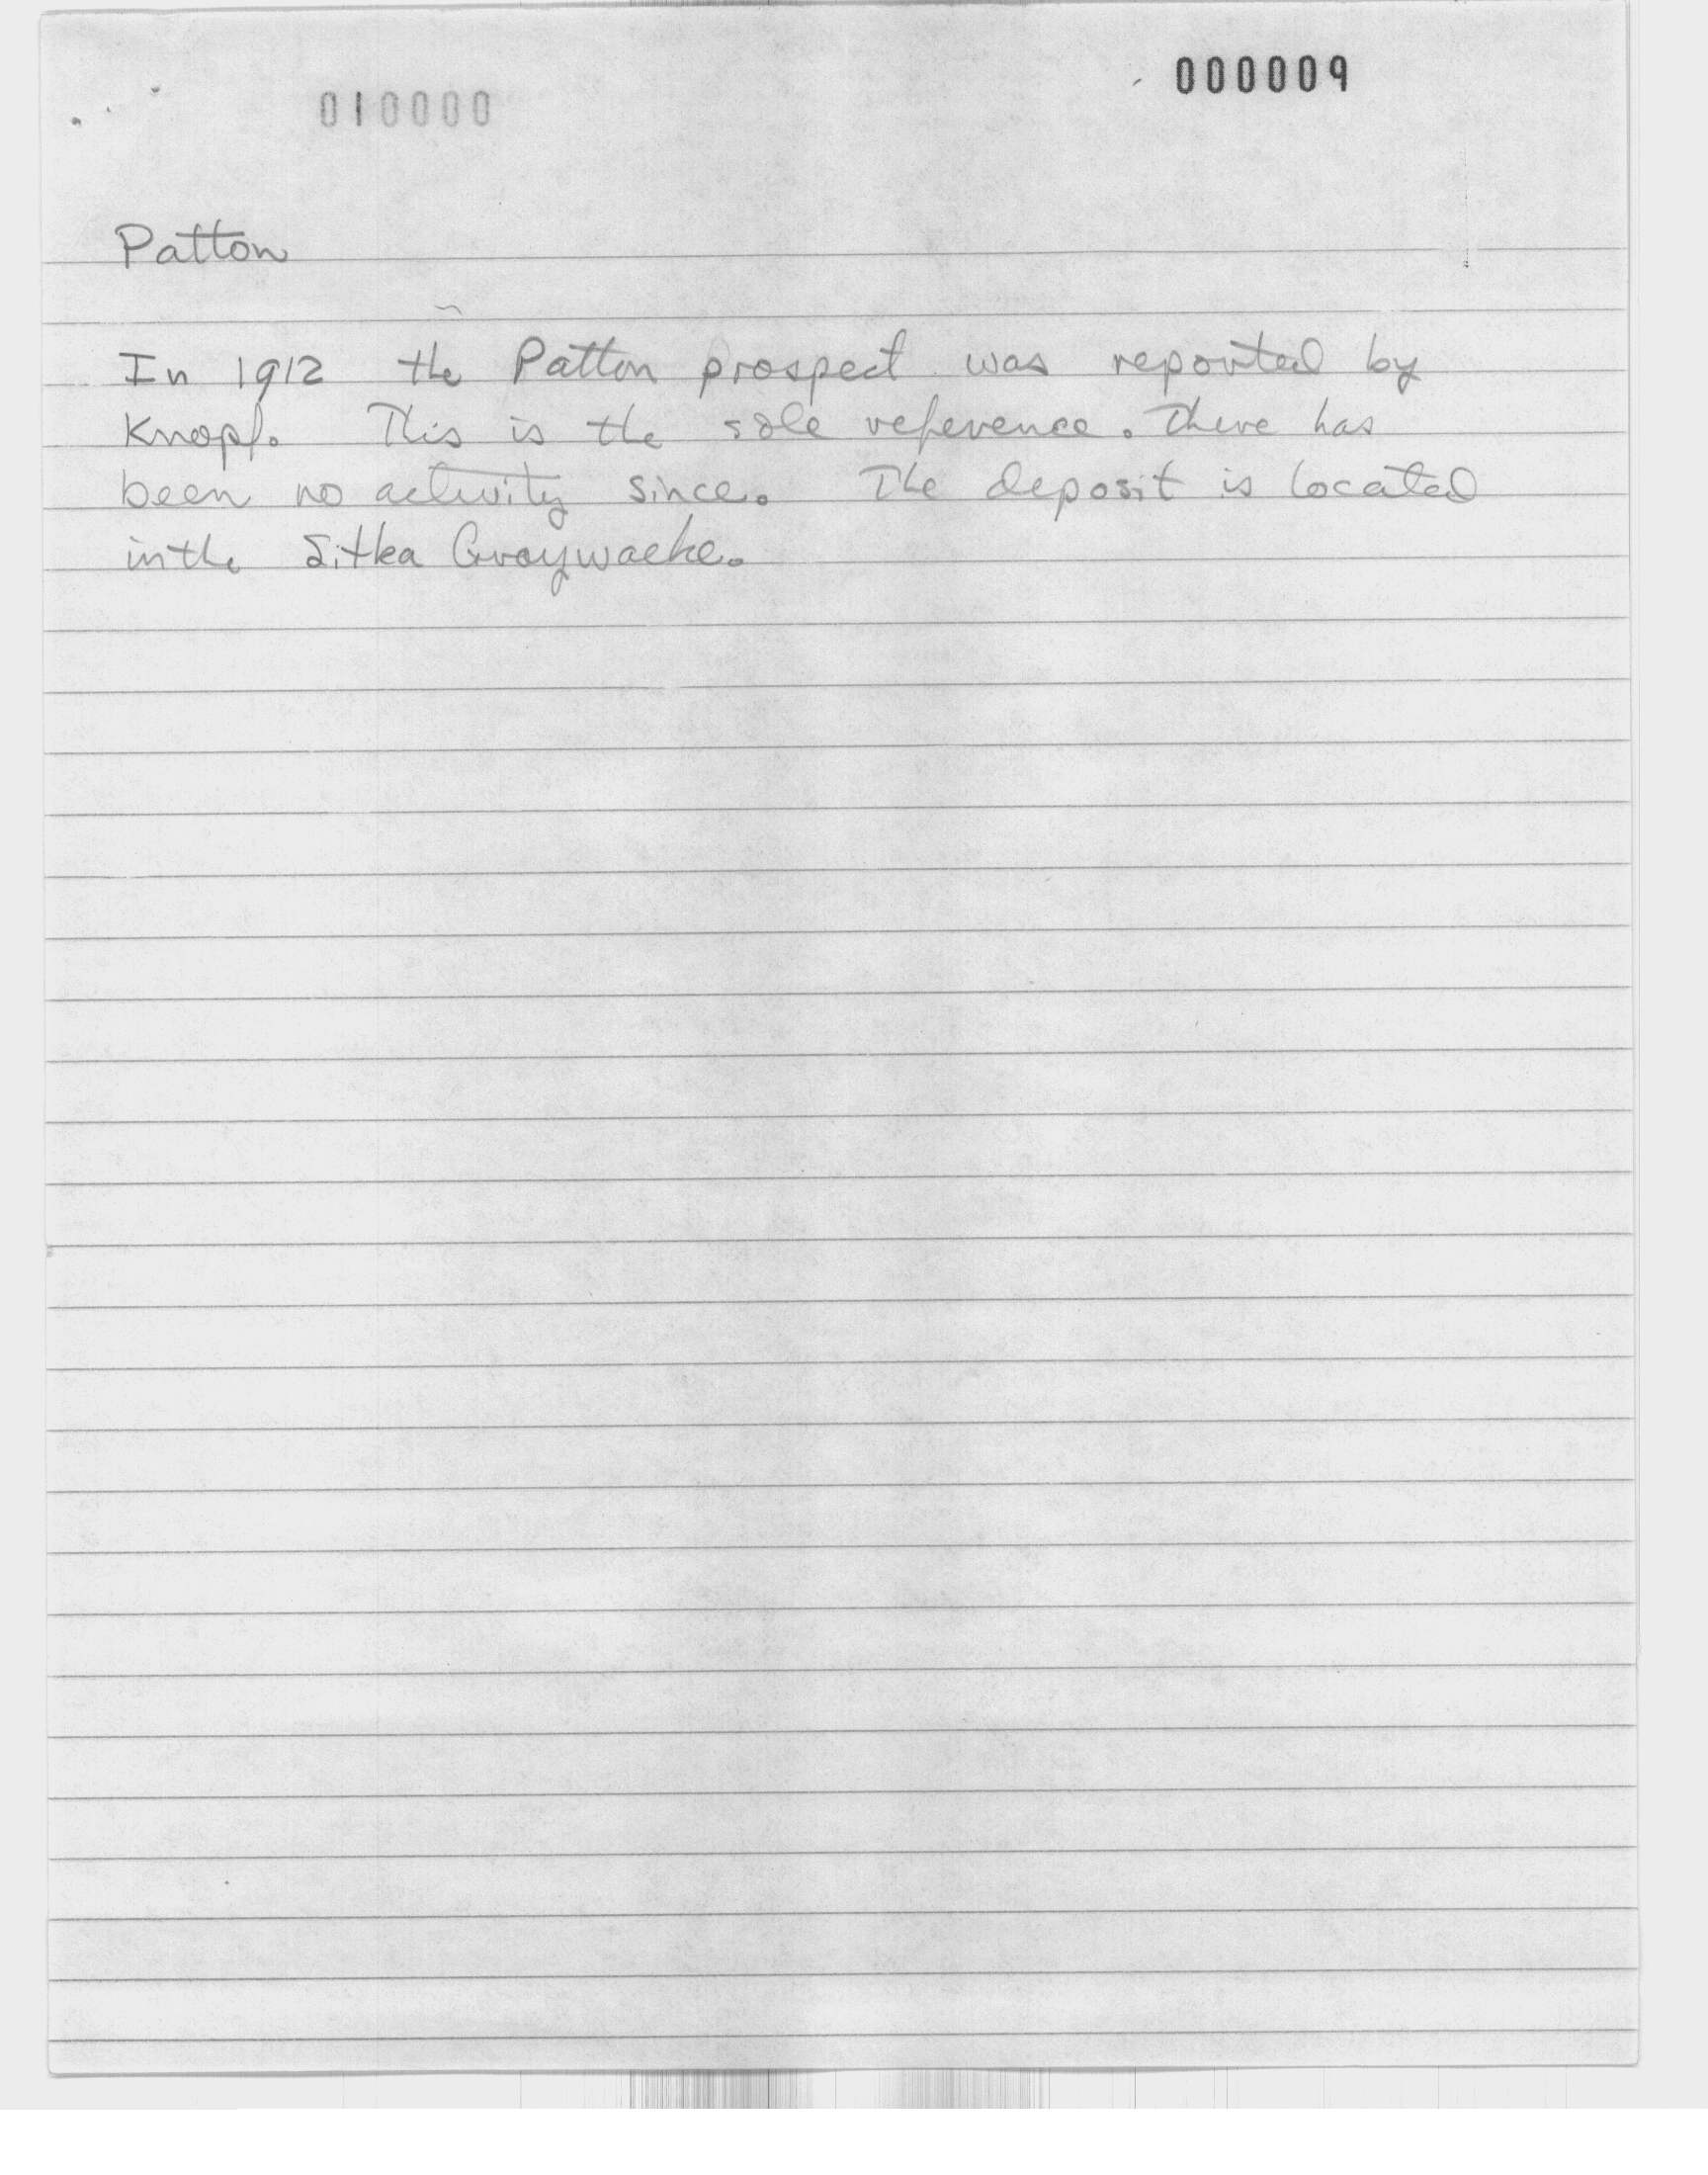 000009
010000
Patton
In 1912 the Patton prospect was reported by
Knopf. This is the sole reference. There has
been no activity since. The deposit is located
in the Sitka Graywacke.